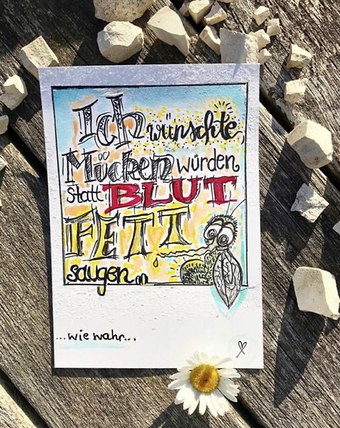 Ich wünschte,
Mücken würden,
statt BLUT
FETT
saugen
...wie wahr...